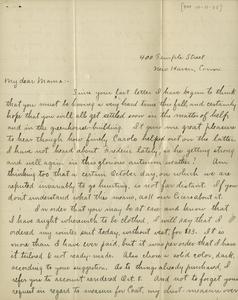 400 Temple Street
New Haven, Conn.
My dear Mama:-
Since your last letter I have begun to think
that you must be having a very hard time this fall, and certainly
hope that you will all get settled soon in the matter of help,
and in the greenhouse-building. It gives me great pleasure
to hear though how finely Carolo helped out on the latter.
I have not heard about Frederic lately, is he getting strong
and well again in this glorious autumn weather? Am
thinking too that a certain October day, on which we are
reputed invariably to go hunting, is not far distant. If you
don't understand what this means, ask our
In order that you may be at ease and know that
I have aught wherewith to be clothed, I will say that I
ordered my winter suit today, without vest, for $23. It is
more than I have ever paid, but it was in order that I have
it tailored & not ready-made. Also chose a solid color, dark,
according to your suggestion. As to things already purchased, I
refer you to account rendered Oct. 1. And not to forget your
request in regard to measure for Coat, my chest measure over